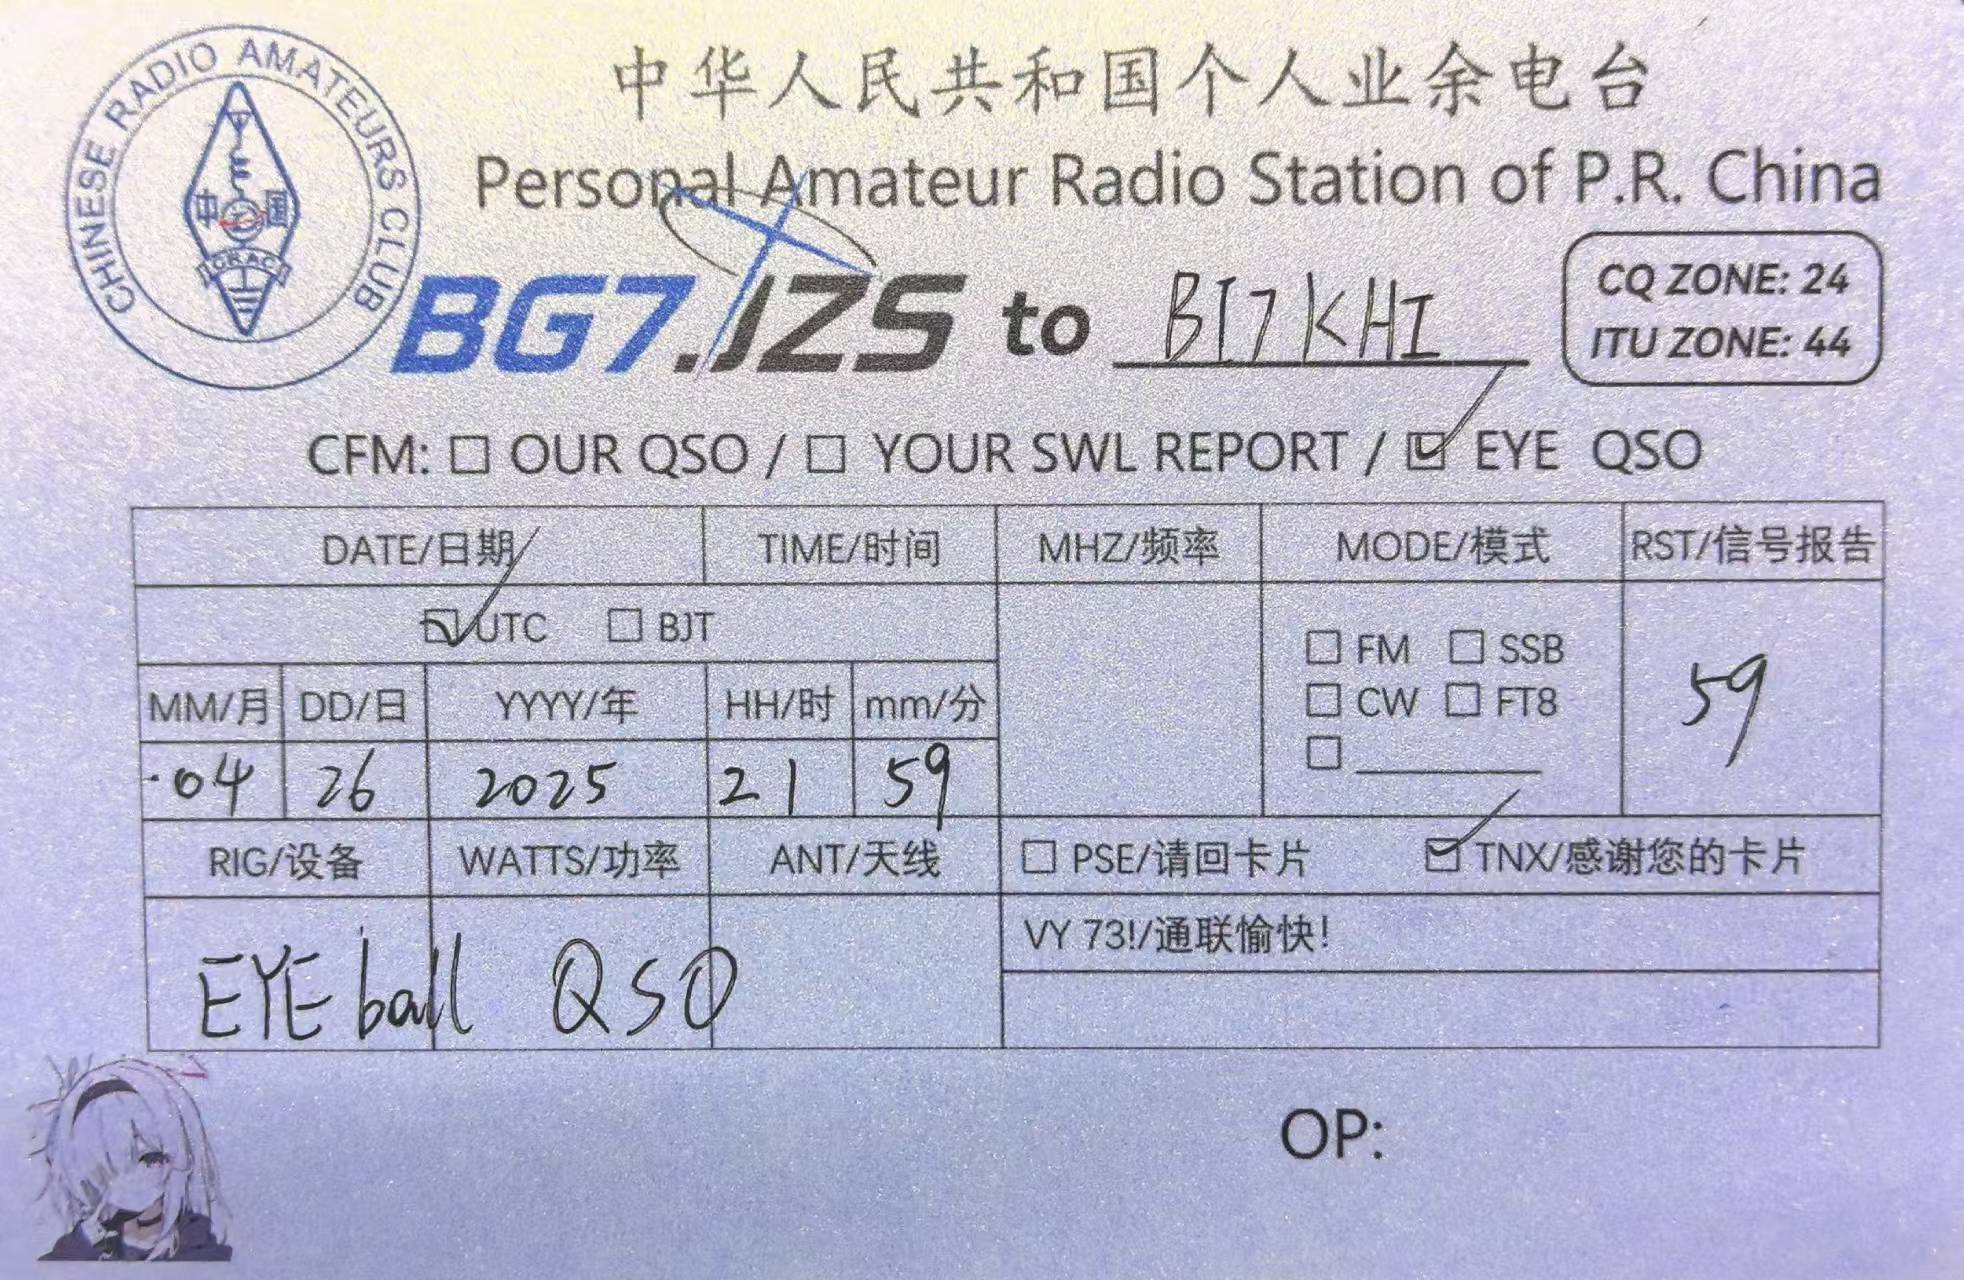 CHINESE RADIO AMATEURS CLUB
中 国
CRAC
中华人民共和国个人业余电台
Personal Amateur Radio Station of P.R. China
BG7.JZS to BI7KHI
CQ ZONE: 24
ITU ZONE: 44
CFM: ☐ OUR QSO / ☐ YOUR SWL REPORT / ☑ EYE QSO
DATE/日期 TIME/时间 MHZ/频率 MODE/模式 RST/信号报告
☑ UTC ☐ BJT
☐ FM ☐ SSB
☐ CW ☐ FT8
☐
59
MM/月 DD/日 YYYY/年 HH/时 mm/分
04 26 2025 21 59
RIG/设备 WATTS/功率 ANT/天线 ☐ PSE/请回卡片 ☑ TNX/感谢您的卡片
EYEball QSO
VY 73!/通联愉快!
OP: